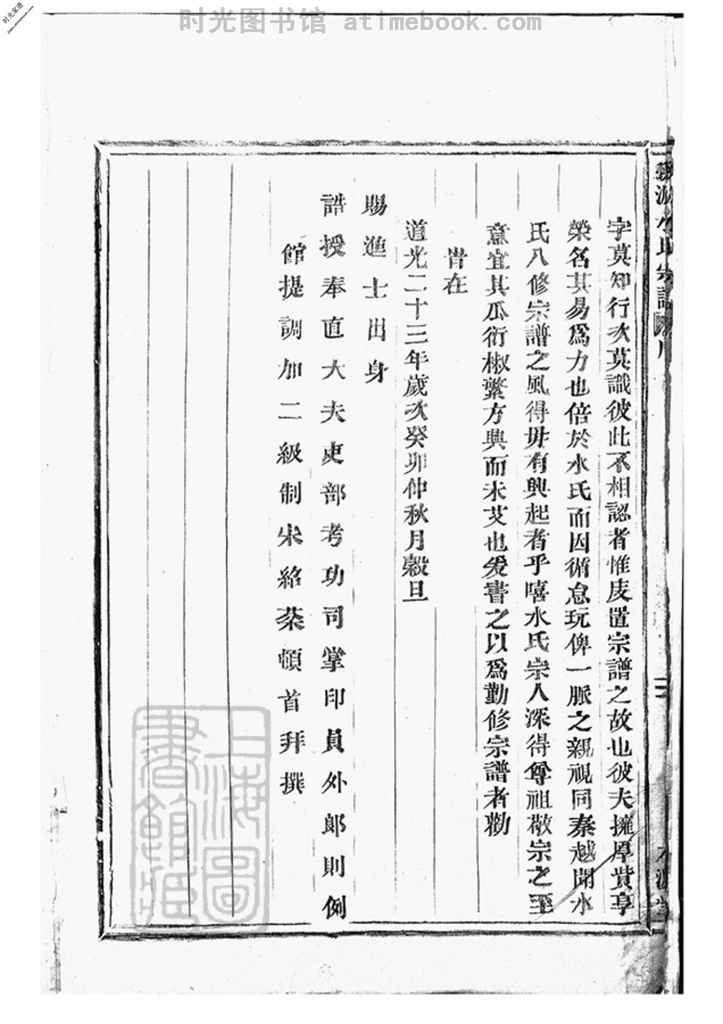 时光图书馆 atimebook.com
时光家谱
水氏宗譜
字莫知行次莫識彼此不相認者惟庋置宗譜之故也彼夫擁厚貲享
榮名其易爲力也倍於水氏而因循怠玩俾一脈之親視同秦越聞水
氏八修宗譜之風得毋有興起者乎嘻水氏宗人深得尊祖敬宗之至
意宜其瓜衍椒蘩方興而未艾也爰書之以爲勤修宗譜者勸
旹在
道光二十三年歲次癸卯仲秋月穀旦
賜進士出身
誥授奉直大夫吏部考功司掌印員外郎則例
館提調加二級制宋紹棻頓首拜撰
上海圖
書館藏